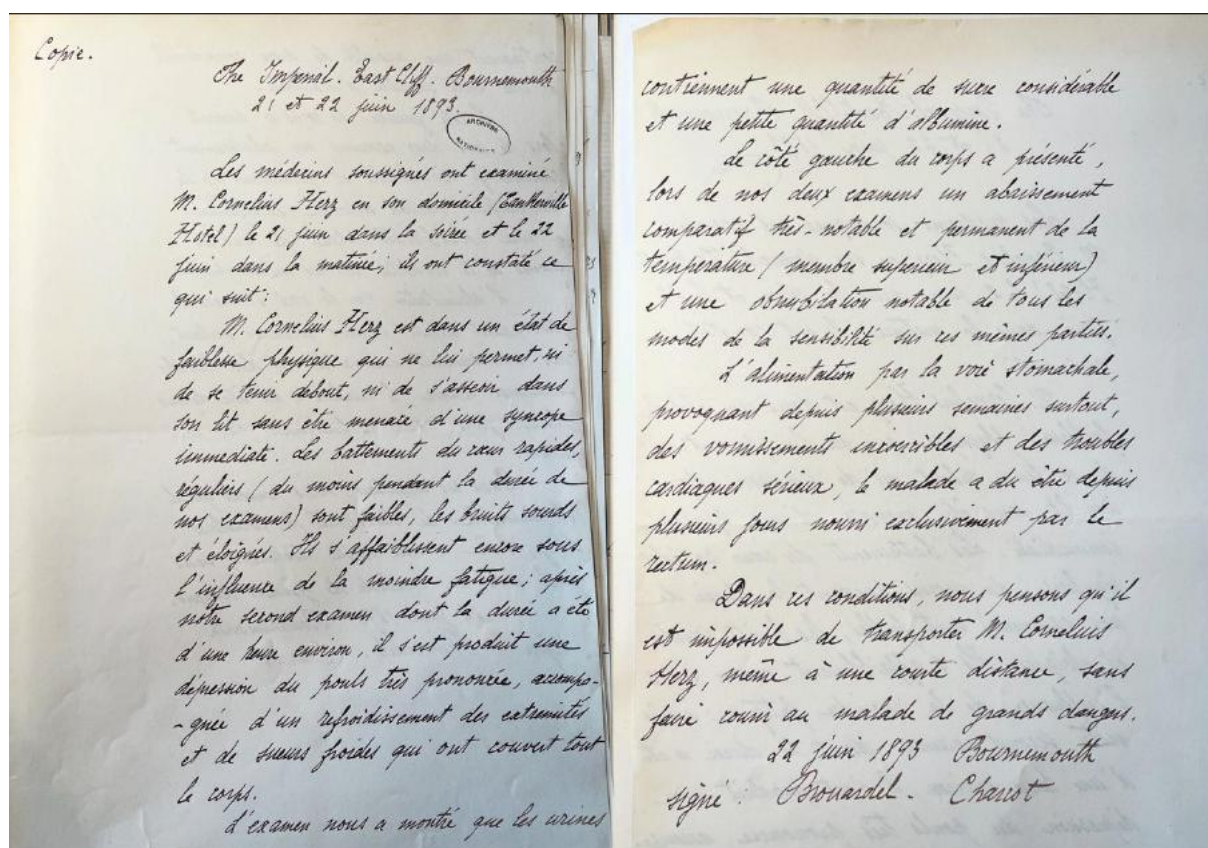 Copie.
The Imperial. East Cliff. Bournemouth
21 et 22 juin 1893.
ARCHIVES
NATIONALES
Les médecins soussignés ont examiné
M. Cornelius Herz en son domicile (Tankerville
Hotel) le 21 juin dans la soirée et le 22
juin dans la matinée; ils ont constaté ce
qui suit:
M. Cornelius Herz est dans un état de
faiblesse physique qui ne lui permet, ni
de se tenir debout, ni de s'asseoir dans
son lit sans être menacé d'une syncope
immediate. Les battements du cœur rapides,
réguliers (du moins pendant la durée de
nos examens) sont faibles, les bruits sourds
et éloignés. Ils s'affaiblissent encore sous
l'influence de la moindre fatigue; après
notre second examen dont la durée a été
d'une heure environ, il s'est produit une
dépression du pouls très prononcée, accompa-
-gnée d'un refroidissement des extremités
et de sueurs froides qui ont couvert tout
le corps.
L'examen nous a montré que les urines
contiennent une quantité de sucre considérable
et une petite quantité d'albumine.
Le côté gauche du corps a présenté,
lors de nos deux examens un abaissement
comparatif très-notable et permanent de la
température (membre superieur et inférieur)
et une obnubilation notable de tous les
modes de la sensibilité sur ces mêmes parties.
L'alimentation par la voie stomachale,
provoquant depuis plusieurs semaines surtout,
des vomissements incoercibles et des troubles
cardiaques sérieux, le malade a du être depuis
plusieurs jours nourri exclusivement par le
rectum.
Dans ces conditions, nous pensons qu'il
est impossible de transporter M. Cornelius
Herz, même à une courte distance, sans
faire courir au malade de grands dangers.
22 juin 1893 Bournemouth
signé: Brouardel - Charcot